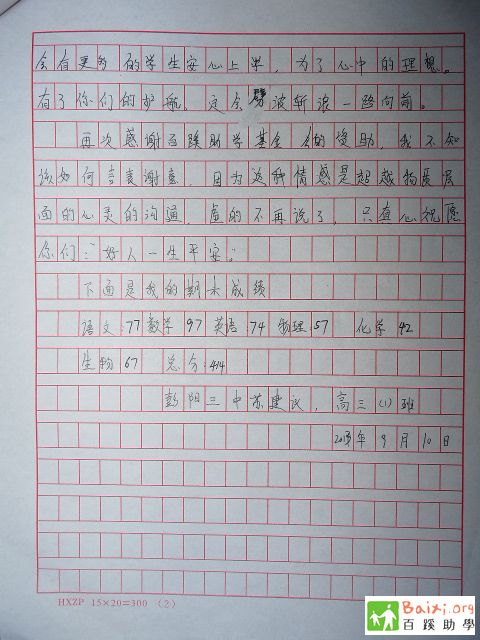 会有更多的学生安心上学，为了心中的理想。
有了你们的护航，定会劈波斩浪一路向前。
再次感谢百蹊助学基金会的资助，我不知
该如何言表谢意，因为这种情感是超越物质层
面的心灵的沟通，虚的不再说了，只真心祝愿
你们："好人一生平安"。
下面是我的期末成绩
语文:77 数学97 英语:74 物理:57 化学42
生物67 总分:414
彭阳三中苏建议，高三(1)班
2013年9月10日
HXZP 15×20=300 (2)
Baixi.org
百蹊助學